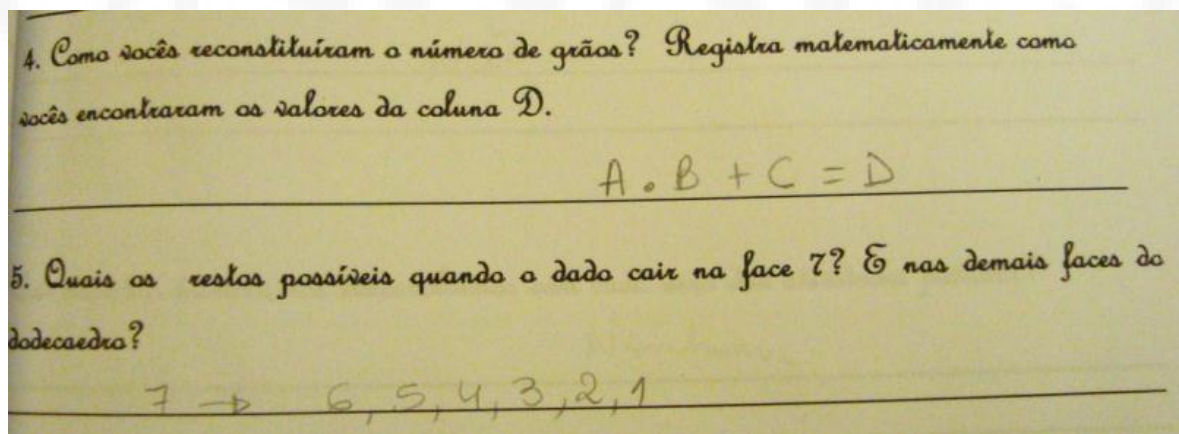 4. Como vocês reconstituíram o número de grãos? Registra matematicamente como
vocês encontraram os valores da coluna D.
A . B + C = D
5. Quais os restos possíveis quando o dado cair na face 7? E nas demais faces do
dodecaedro?
7 → 6, 5, 4, 3, 2, 1